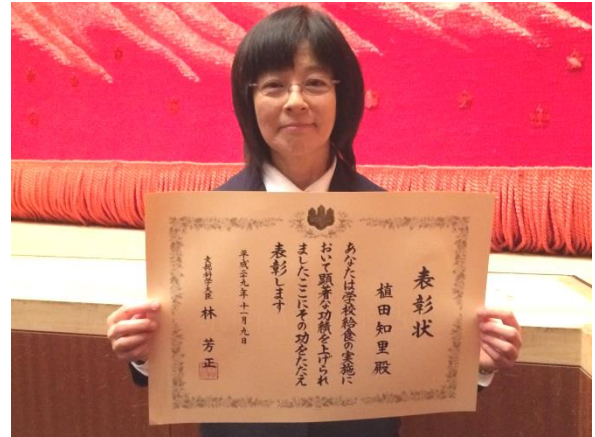 表彰状
植田知里殿
あなたは学校給食の実施に
おいて顕著な功績を上げられ
ましたここにその功をたたえ
表彰します
平成二十九年十一月九日
文部科学大臣 林 芳正